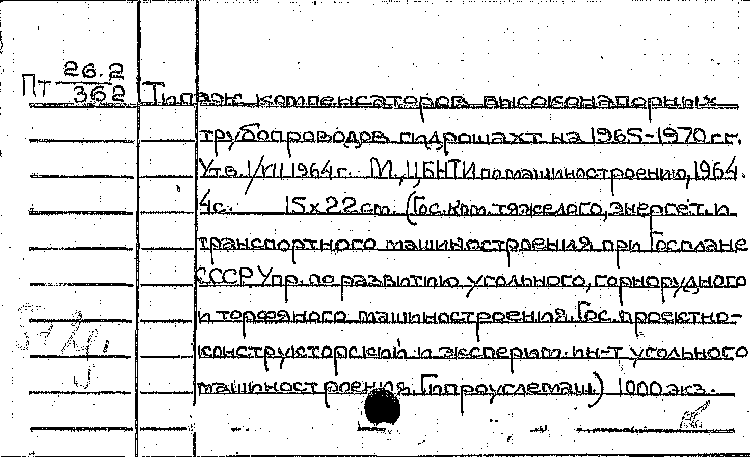 Пт 26.2
362 Типаж компенсаторов высоконапорных
трубопроводов гидрошахт на 1965-1970 гг.
Утв. 1/VII 1964 г. М., ЦБНТИ по машиностроению, 1964.
4с. 15х22 cm. (Гос. ком. тяжелого, энергет. и
транспортного машиностроения при Госплане
СССР Упр. по развитию угольного, горнорудного
и торфяного машиностроения. Гос. проектно-
конструкторский и эксперим. ин-т угольного
машиностроения. Гипроуглемаш.) 1000 экз.